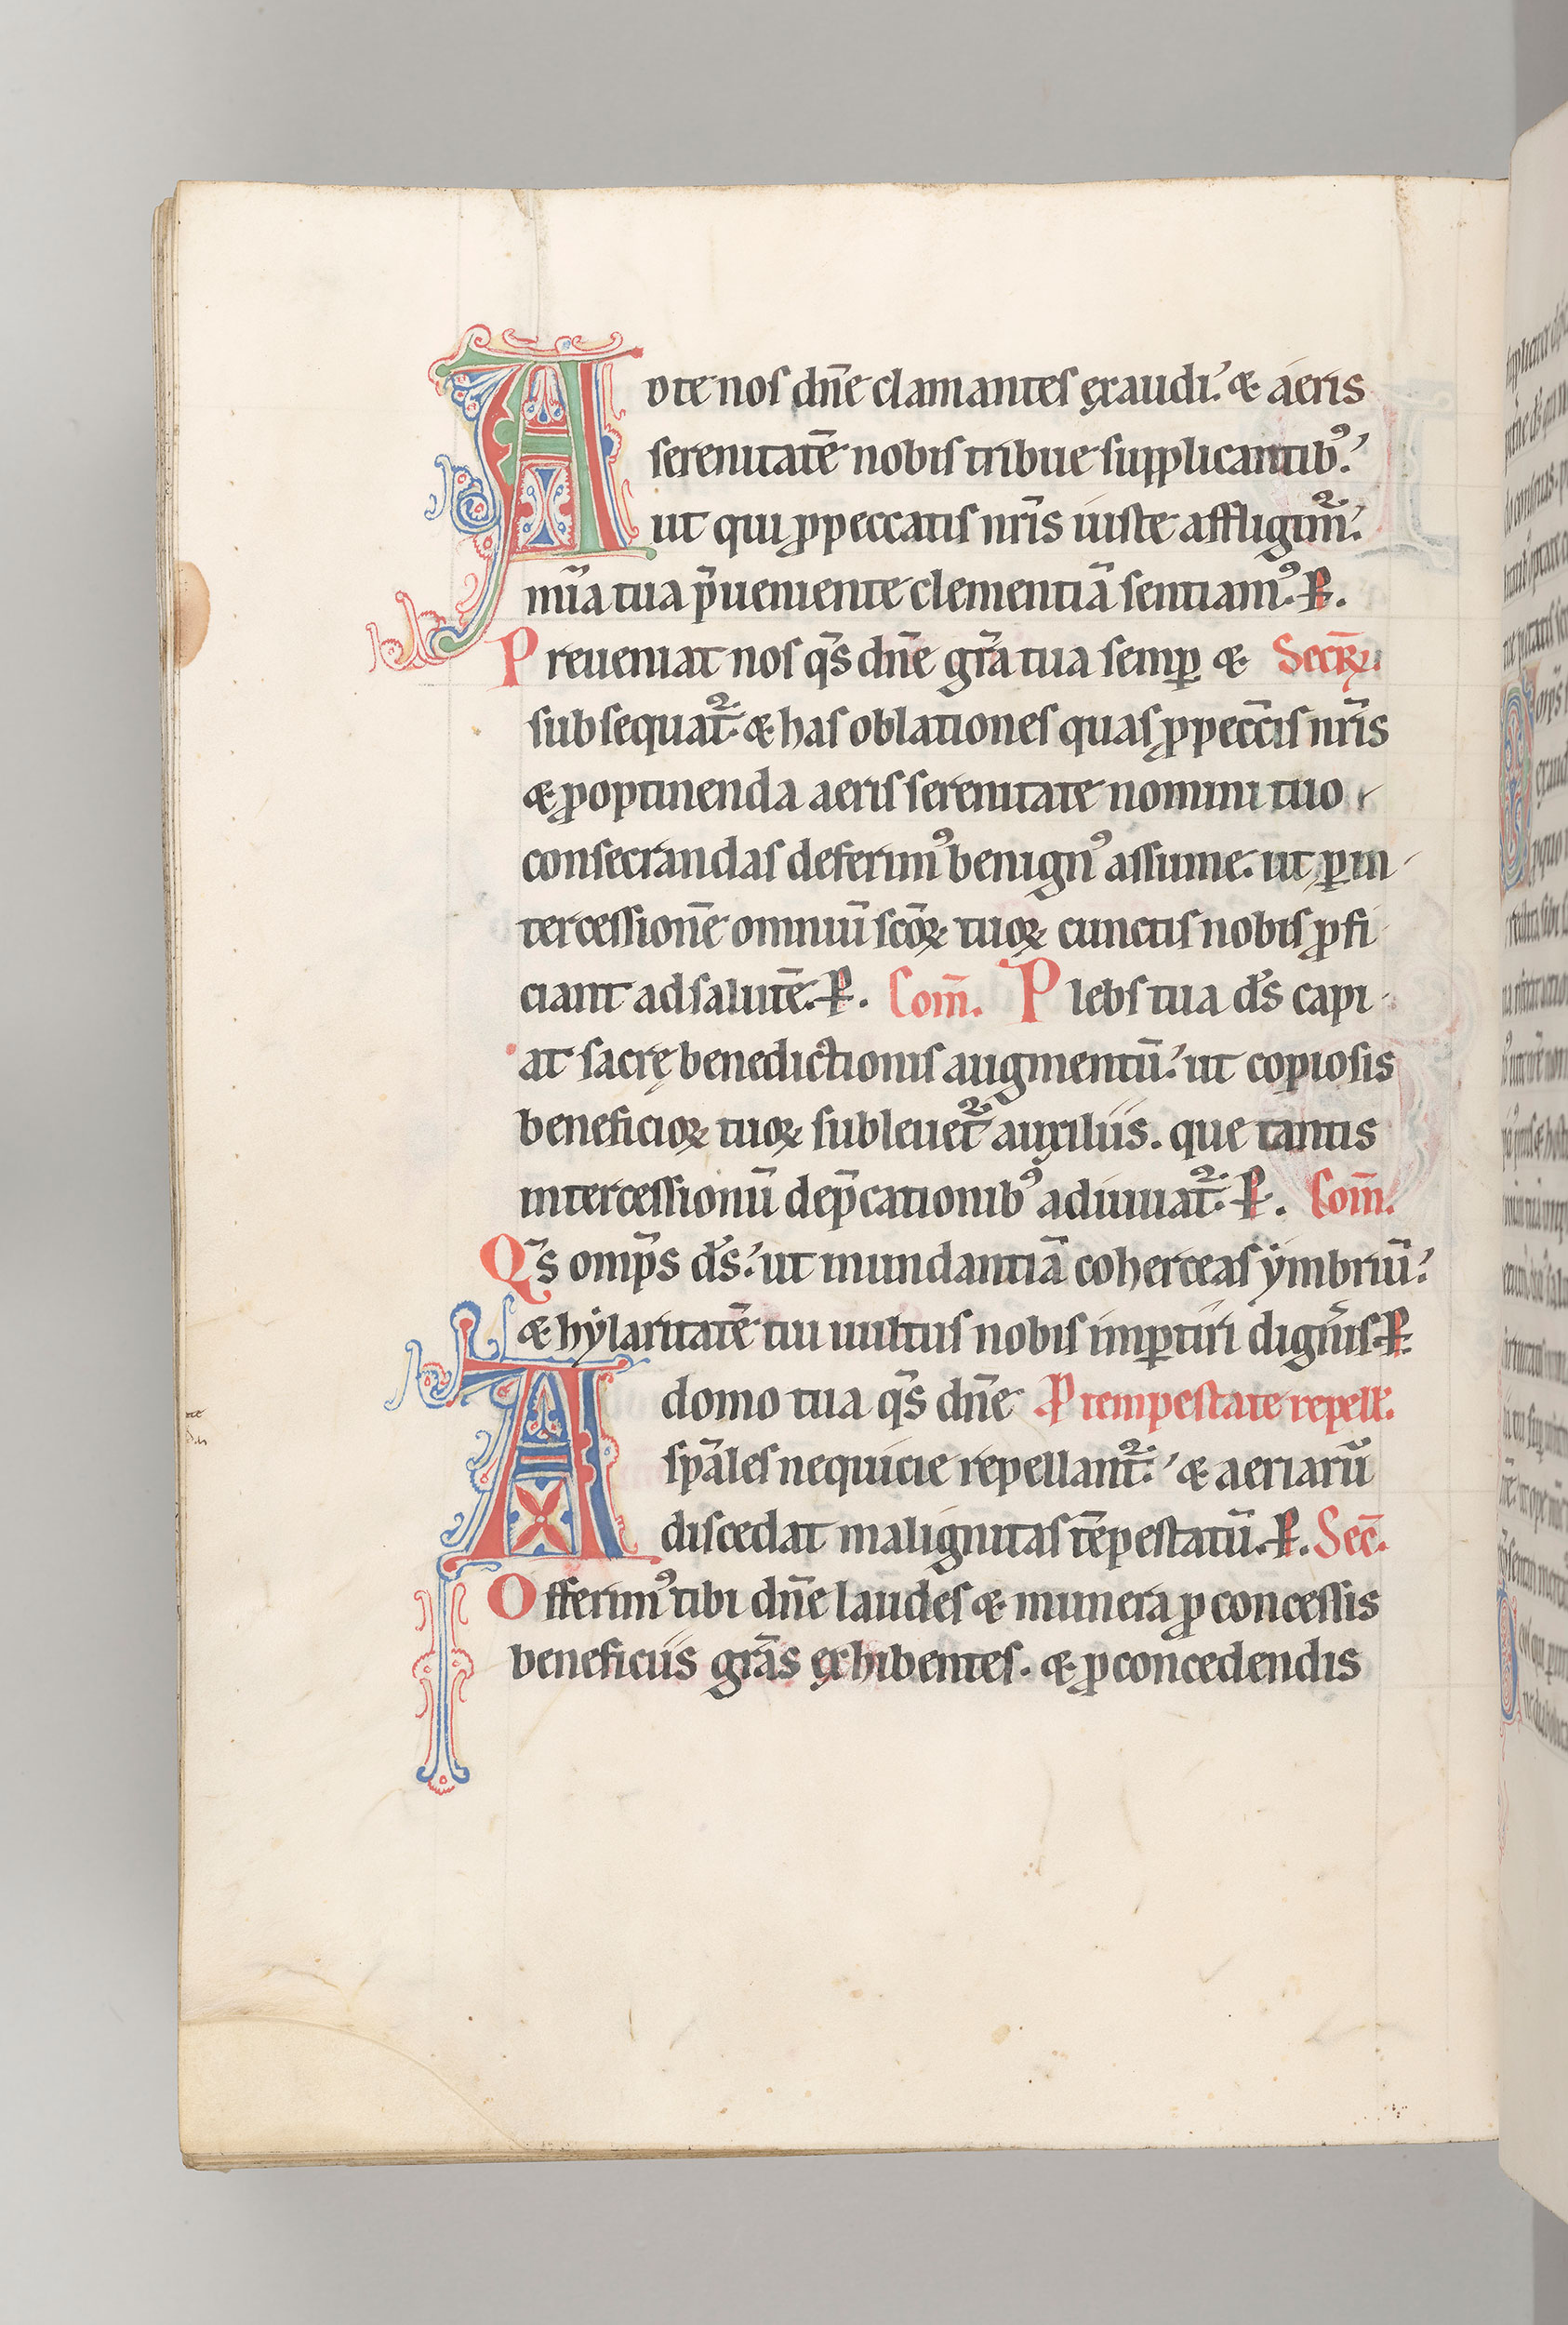 A dte nos dn̄e clamantes exaudi: & aeris
serenitatē nobis tribue supplicantib᷒:
ut qui ꝓ peccatis nr̄is iuste affligim᷑:
mīa tua p̄ueniente clementiā sentiam᷒. P.
Preueniat nos qs̄ dn̄e gr̄a tua semꝑ & Secrꝝ.
subsequat᷑. & has oblationes quas ꝓ pecc̄is nr̄is
& ꝓ optinenda aeris serenitate nomini tuo
consecrandas deferim᷒ benign᷒ assume. ut ꝑ in
tercessionē omniū sc̄oꝝ tuoꝝ cunctis nobis ꝓfi
ciant ad salutē. P. Com̄. Plebs tua ds̄ capi
at sacrę benedictionis augmentū: ut copiosis
beneficioꝝ tuoꝝ subleuet᷑ auxiliis. que tantis
intercessionū dep̄cationib᷒ adiuuat᷑. P. Com̄.
Qs̄ omp̄s ds̄: ut mundantiā coherceas ẏmbriū:
& hẏlaritatē tui uultus nobis imꝑtiri digneris. P.
A domo tua qs̄ dn̄e P tempestate repell.
sp̄ales nequicie repellant᷑: & aeriarū
discedat malignitas tēpestatū. P. Sec̄.
Offerim᷒ tibi dn̄e laudes & munera ꝓ concessis
beneficiis gr̄as exhibentes. & ꝓ concedendis